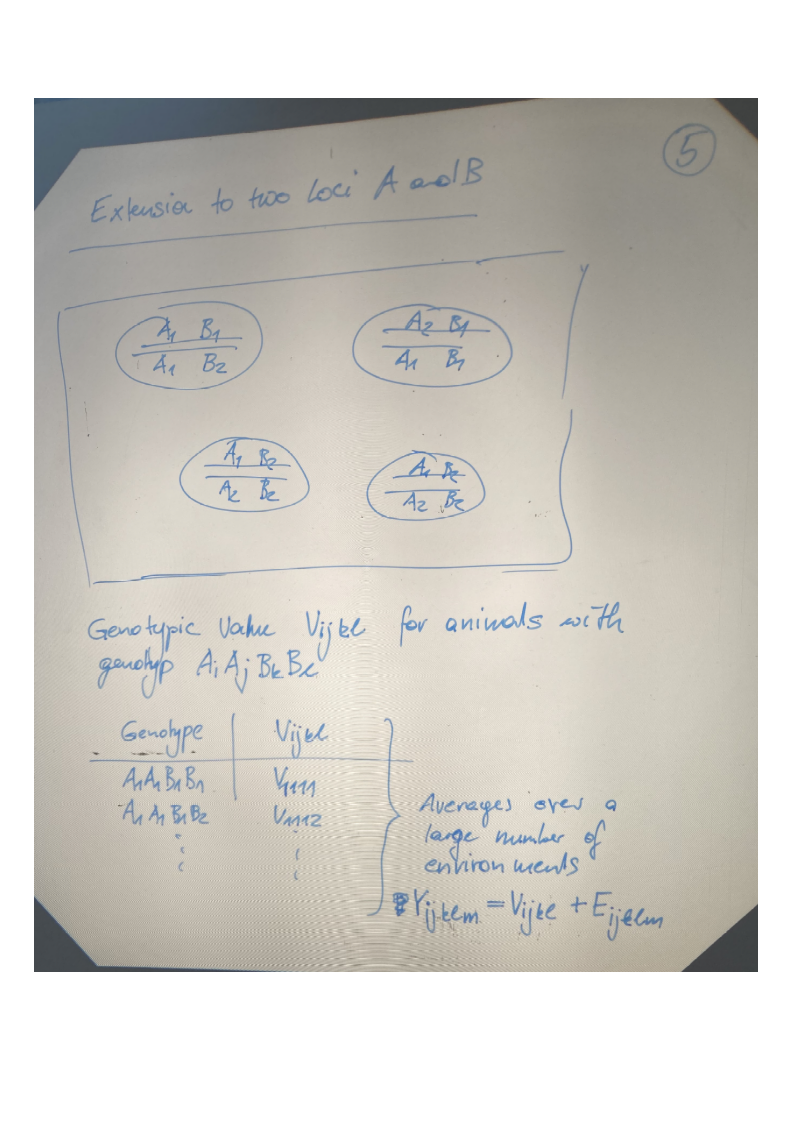 5
Extension to two loci A and B
A1 B1
A1 B2
A2 B1
A1 B1
A1 B2
A2 B2
A1 B2
A2 B2
Genotypic Value Vijkl for animals with
genotyp AiAjBkBl
Genotype Vijkl
A1A1B1B1 V1111
A1A1B1B2 V1112
Averages over a
large number of
environments
Yijklm = Vijkl + Eijklm